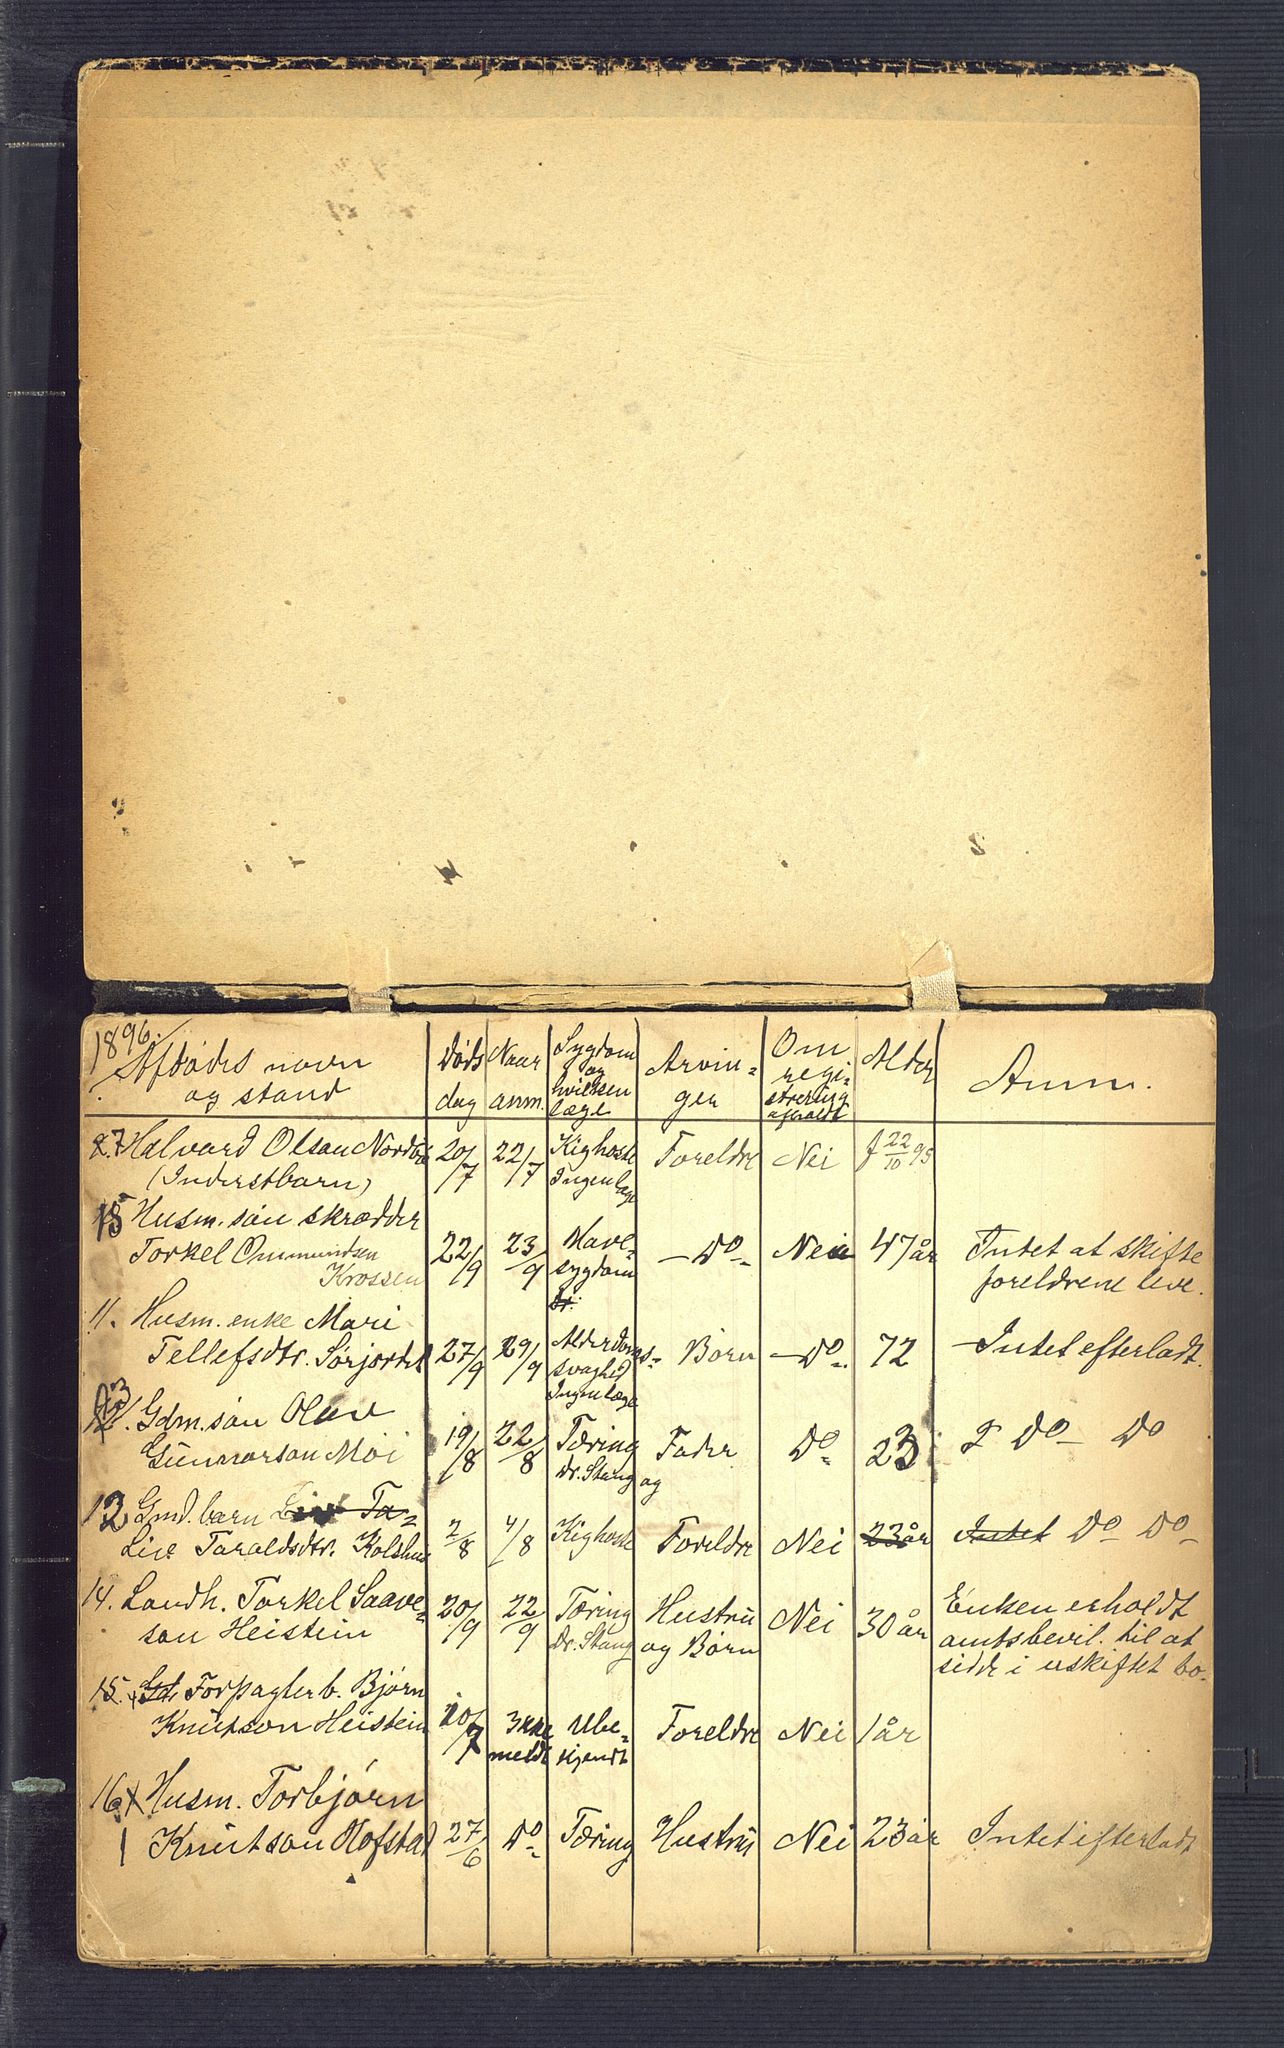 1896.
Afdødes navn og stand | Døds dag | Naar anm. | Sygdom og hvilken læge | Arvinger | Om registrering afholdt | Alder | Anm.
7 Halvard Olsan (Inderstbarn) | 20/7 | 22/7 | Kighoste Ingen læge | Foreldre | Nei | f 22/10 95
15 Husm. søn skrædder Torkel Ommundsen Krossen | 22/9 | 23/9 | Mave-sygdom | —Do- | Nei | 47 år | Intet at skifte foreldrene leve.
11. Husm. enke Mari Tellefsdtr. Sørjordet | 27/9 | 29/9 | Alderdoms-svaghed Ingen læge | Børn | —Do- | 72 | Intet efterladt.
Gdm. søn Olav Gunnarson Moi | 19/8 | 22/8 | Tæring Dr. Stang | Fader og | Do- | 23 | Do— Do
Gmd. barn Liv Ta- Live Taraldsdtr. | 2/8 | 4/8 | Kighoste | Foreldre | Nei | 23 år | Intet Do Do-
14. Landh. Torkel Saave-son Heistein | 20/9 | 22/9 | Tæring Dr. Stang | Hustru og Børn | Nei | 30 år | Enken erholdt amtsbevil. til at sidde i uskiftet bo.
15. Forpagter b. Bjørn Knutson Heistein | 20/7 | Ikke meldt | Ube-kjendt | Foreldre | Nei | 1 år
16 x Husm. Torbjørn Knutson Hofstad | 27/6 | Do- | Tæring | Hustru | Nei | 23 år | Intet efterladt